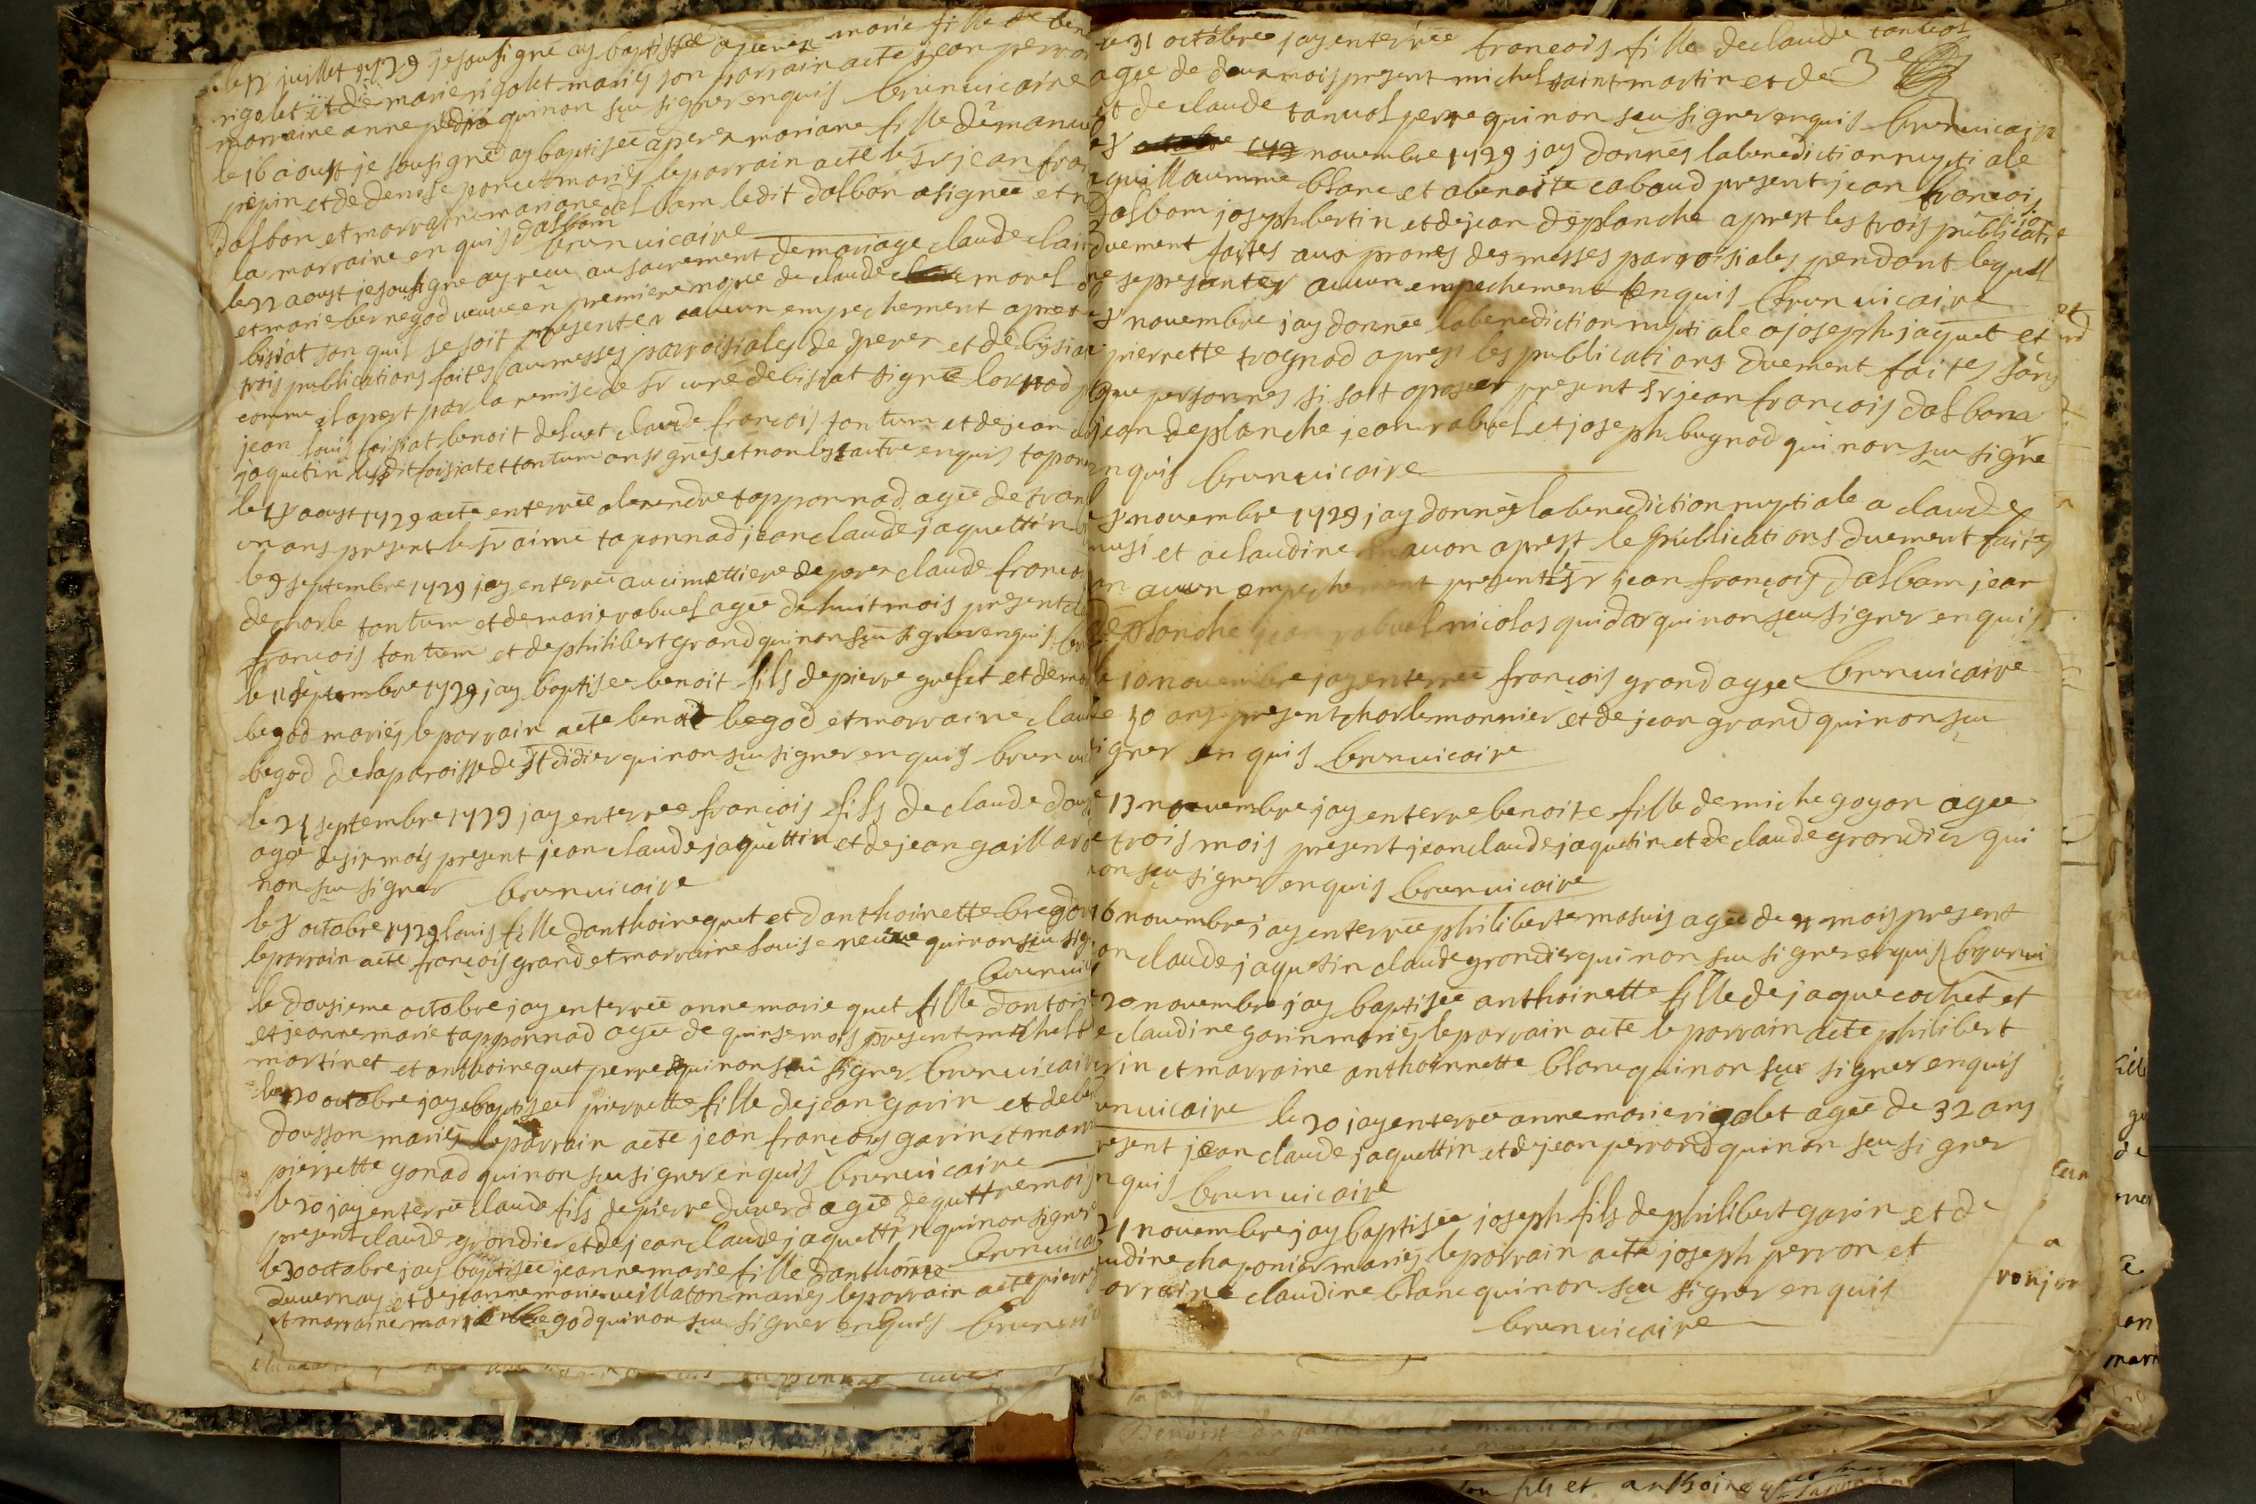 le 12 juillet 1729 je sousigné ay baptissée a perex marie fille de ben
rigolet et de marie rigolet mariés son parrain a ete jean perron
marraine anne pedra qui non sçu signer enquis brun vicaire
le 16 aoust je sousigné ay baptisée a perex mariane fille d'emanuel
pepin et de denise poncet mariés le parrain a ete le sr jean fran
dalban et marraine mariane dalbam le dit dalban a signée et n
la marraine enquis dalbam brun vicaire
le 22 aoust je sousigné ay reçu au sacrement de mariage claude clair
et marie bernigod veuve en premiere nopce de claude morel
bisiat son quil se soit presenter aucun empechement apres
trois publications faites au messes parroisiales de perex et de bisiat
comme il apert par la remise de sr curé de bisiat signé lornod
jean louis loisiat benoit deluet claude françois tantum et de jean
jaquetin lesdit loisiat et tantum on signés et non les autre enquis tapon
le 25 aoust 1729 a ete enterrée alexendre tapponnad agée de
un ans present le sr aimé taponnad jean claude jaquettin
le 9 septembre 1729 jay enterrée au cimettiere de perex claude françois
de charle tantum et de marie rabuel agée de huit mois present de
françois tantum et de philibert grand qui non sçu signer enquis
le 11 septembre 1729 jay baptisée benoit fils de pierre guefet et de ma
begod mariés le parrain a ete benoit begod et marraine claud
begod de la paroisse de st didier qui non sçu signer enquis brun
le 21 septembre 1729 jay enterrée françois fils de claude
agé de six mois present jean claude jaquettin et de jean gaillard
non sçu signer brun vicaire
le 8 octobre 1729 louis fille danthoine quet et danthoinette begod
le parrain a ete françois grand et marraine louise neuve qui non sçu sig
brun vic
le dousieme octobre jay enterrée anne marie quet fille dantoine
et jeanne marie tapponnad agée de quinse mois present michel
martinet et anthoine quet perre qui non sçu signer brun vicaire
le 20 octobre jay baptisée pierrette fille de jean garin et de
dousson mariés le parrain a ete jean françois garin et marr
pierrette gonad qui non sçu signer enquis brun vicaire
le 20 jay enterrée claude fils de pierre duverd agée de quttre mois
present claude grondier et de jean claude jaquettin qui non signer
brun vicai
le 30 octobre jay baptisée jeanne marie fille danthoine
duvernay et de jeanne marie veillaton mariés le parrain a ete pierre
et marraine marie begod qui non sçu signer enquis brun vi
le 31 octobre jay enterrée françois fille de claude
agée de deux mois present michel saint martin et de
et de claude perre qui non sçu signer enquis brun vicair
novembre 1729 jay donnes la benediction nuptiale
a guillaumme blanc et a benoite cabaud present jean françois
dalbam joseph bertin et de jean deplanche aprest les trois publication
duement faites aux prones des messes parroisiales pendant lequell
ne se presenter aucun empechement enquis brun vicaire
novembre jay donnée la benediction nuptiale a joseph jaquet et
pierrette trognad apres les publications duement faites sans
que personnes si soit oposeer present sr jean françois dalbam
jean deplanche jean rabuel et joseph bugnod qui non sçu signer
enquis brun vicaire
novembre 1729 jay donnés la benediction nuptiale a claude
et a claudine aprest le publications duement faites
san aucun empechement present le sr jean françois dalbam jean
deplanche jean rabuel nicolas quidar qui non sçeu signer enquis
brun vicaire
le 10 novembre jay enterrée françois grand agée
de 50 ans present charle monnier et de jean grand qui non sçu
signer enquis brun vicaire
13 novembre jay enterre benoite fille de miche goyon agée
de trois mois present jean claude jaquetin et de claude grondier qui
non sçu signer enquis brun vicaire
16 novembre jay enterrée philiberte masuis agée de mois present
claude jaquetin claude grondier qui non sçu signer enquis brun vi
20 novembre jay baptisée anthoinette fille de jaque cochet et
de claudine garin mariés le parrain a ete le parrain a ete philibert
rin et marraine anthoinnette blanc qui non sçu signer enquis
brun vicaire le 20 jay enterrée anne marie rigolet agée de 32 ans
present jean claude jaquettin et de jean perrond qui non sçu signer
enquis brun vicaire
21 novembre jay baptisée joseph fils de philibert garin et de
claudine chaponier mariés le parrain a ete joseph perron et
marraine claudine blanc qui non sçu signer enquis
brun vicaire